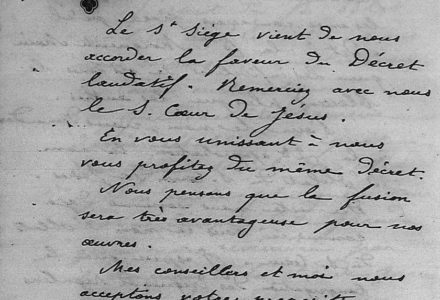 Le St Siège vient de nous
accorder la faveur du Décret
laudatif. Remerciez avec nous
le S. Cœur de Jésus.
En vous unissant à nous
vous profitez du même décret.
Nous pensons que la fusion
sera très avantageuse pour nos
œuvres.
Mes conseillers et moi nous
acceptons votre